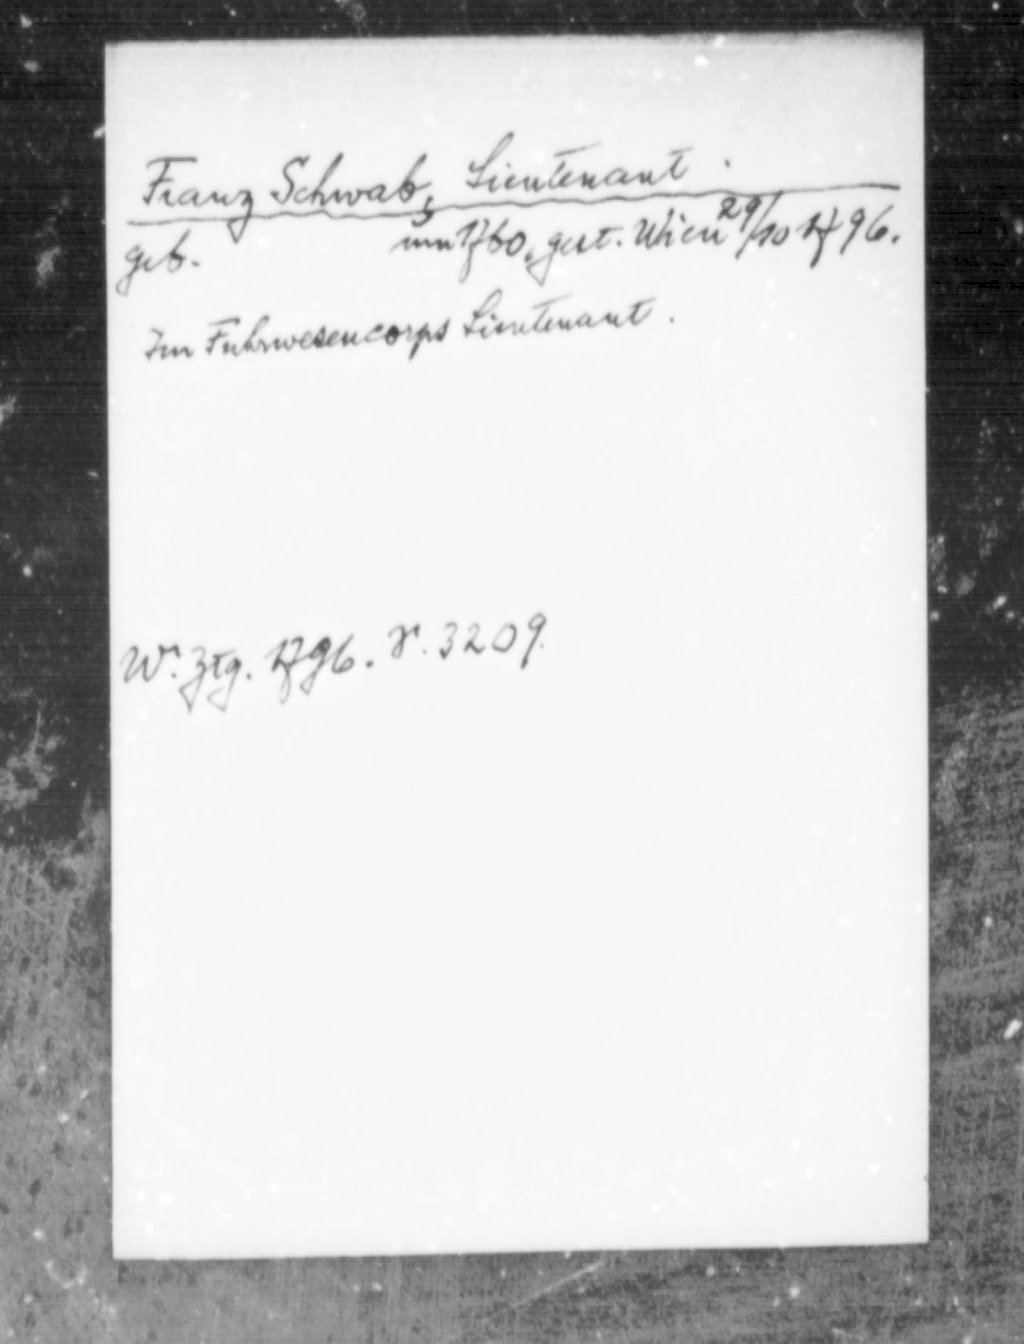 Franz Schwab, Lieutenant.
geb. um 1760, gest. Wien 29/10 1796.
Im Fuhrwesencorps Lieutenant.
Wr. Ztg. 1796. S. 3209.